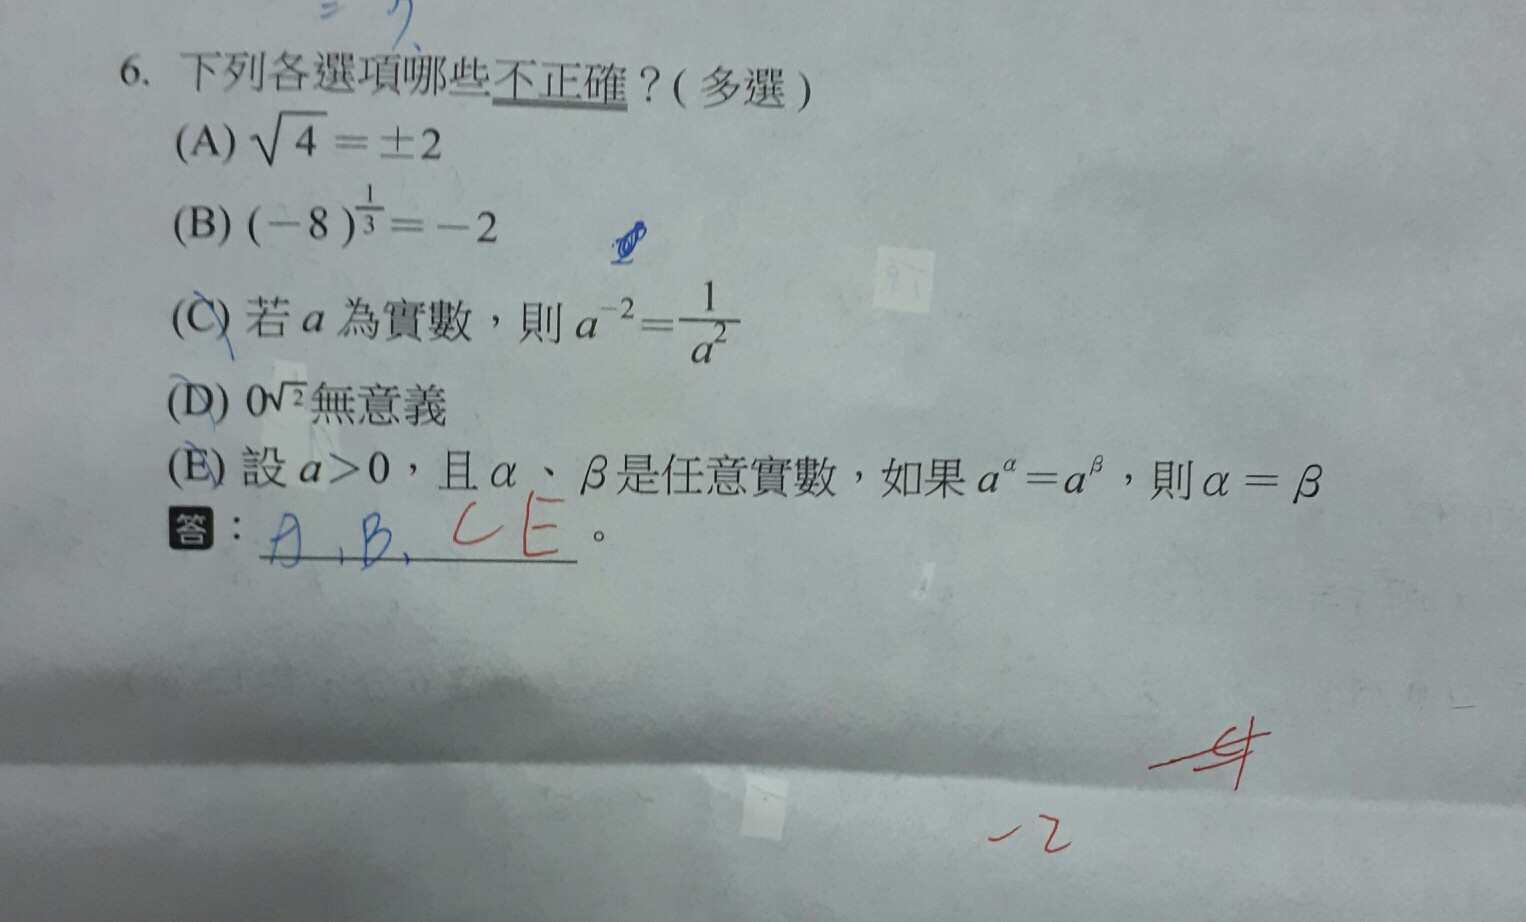 6. 下列各選項哪些不正確？(多選)
(A) √4 = ±2
(B) (−8)^{1/3} = −2
(C) 若 a 為實數，則 a^{-2} = 1/a^2
(D) 0^{√2} 無意義
(E) 設 a>0，且 α、β是任意實數，如果 a^α = a^β，則 α = β
答：A、B、C E。
-2